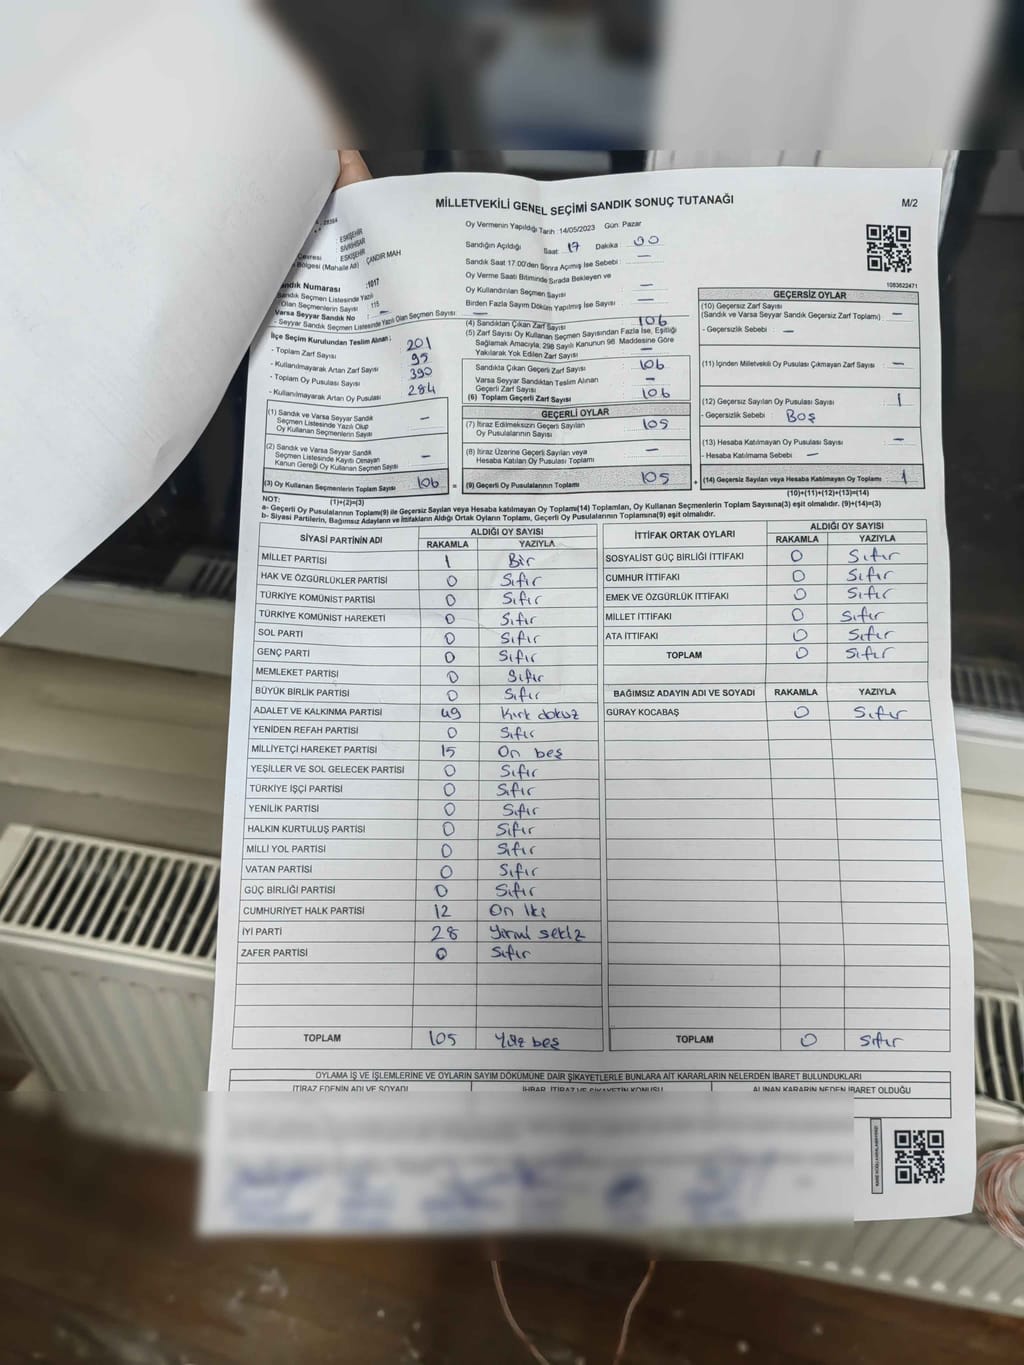 MİLLETVEKİLİ GENEL SEÇİMİ SANDIK SONUÇ TUTANAĞI
M/2
ESKİŞEHİR
SİVRİHİSAR
ESKİŞEHİR
Bölgesi (Mahalle Adı) : ÇANDIR MAH
Sandık Numarası :1017
Sandık Seçmen Listesinde Yazılı
Olan Seçmenlerin Sayısı : 115
Varsa Seyyar Sandık No : -
- Seyyar Sandık Seçmen Listesinde Yazılı Olan Seçmen Sayısı: -
Oy Vermenin Yapıldığı Tarih :14/05/2023 Gün: Pazar
Sandığın Açıldığı Saat: 17 Dakika 00
Sandık Saat 17.00'den Sonra Açımış İse Sebebi : -
Oy Verme Saati Bitiminde Sırada Bekleyen ve
Oy Kullandırılan Seçmen Sayısı -
Birden Fazla Sayım Döküm Yapılmış İse Sayısı : -
1083622471
İlçe Seçim Kurulundan Teslim Alınan;
- Toplam Zarf Sayısı 201
- Kullanılmayarak Artan Zarf Sayısı 95
- Toplam Oy Pusulası Sayısı 390
- Kullanılmayarak Artan Oy Pusulası 284
(1) Sandık ve Varsa Seyyar Sandık
Seçmen Listesinde Yazılı Olup
Oy Kullanan Seçmenlerin Sayısı -
(2) Sandık ve Varsa Seyyar Sandık
Seçmen Listesinde Kayıtlı Olmayan
Kanun Gereği Oy Kullanan Seçmen Sayısı -
(3) Oy Kullanan Seçmenlerin Toplam Sayısı 106 =
(1)+(2)=(3)
(4) Sandıktan Çıkan Zarf Sayısı 106
(5) Zarf Sayısı Oy Kullanan Seçmen Sayısından Fazla İse, Eşitliği
Sağlamak Amacıyla, 298 Sayılı Kanunun 98. Maddesine Göre
Yakılarak Yok Edilen Zarf Sayısı -
Sandıkta Çıkan Geçerli Zarf Sayısı 106
Varsa Seyyar Sandıktan Teslim Alınan
Geçerli Zarf Sayısı -
(6) Toplam Geçerli Zarf Sayısı 106
GEÇERLİ OYLAR
(7) İtiraz Edilmeksizin Geçerli Sayılan
Oy Pusulalarının Sayısı 105
(8) İtiraz Üzerine Geçerli Sayılan veya
Hesaba Katılan Oy Pusulası Toplamı -
(9) Geçerli Oy Pusulalarının Toplamı 105 +
GEÇERSİZ OYLAR
(10) Geçersiz Zarf Sayısı
(Sandık ve Varsa Seyyar Sandık Geçersiz Zarf Toplamı) : -
- Geçersizlik Sebebi : -
(11) İçinden Milletvekili Oy Pusulası Çıkmayan Zarf Sayısı : -
(12) Geçersiz Sayılan Oy Pusulası Sayısı : 1
- Geçersizlik Sebebi : Boş
(13) Hesaba Katılmayan Oy Pusulası Sayısı : -
- Hesaba Katılmama Sebebi -
(14) Geçersiz Sayılan veya Hesaba Katılmayan Oy Toplamı : 1
(10)+(11)+(12)+(13)=(14)
NOT:
a- Geçerli Oy Pusulalarının Toplamı(9) ile Geçersiz Sayılan veya Hesaba katılmayan Oy Toplamı(14) Toplamları, Oy Kullanan Seçmenlerin Toplam Sayısına(3) eşit olmalıdır. (9)+(14)=(3)
b- Siyasi Partilerin, Bağımsız Adayların ve İttifakların Aldığı Ortak Oyların Toplamı, Geçerli Oy Pusulalarının Toplamına(9) eşit olmalıdır.
SİYASİ PARTİNİN ADI ALDIĞI OY SAYISI
RAKAMLA YAZIYLA
MİLLET PARTİSİ 1 Bir
HAK VE ÖZGÜRLÜKLER PARTİSİ 0 Sıfır
TÜRKİYE KOMÜNİST PARTİSİ 0 Sıfır
TÜRKİYE KOMÜNİST HAREKETİ 0 Sıfır
SOL PARTİ 0 Sıfır
GENÇ PARTİ 0 Sıfır
MEMLEKET PARTİSİ 0 Sıfır
BÜYÜK BİRLİK PARTİSİ 0 Sıfır
ADALET VE KALKINMA PARTİSİ 49 Kırk dokuz
YENİDEN REFAH PARTİSİ 0 Sıfır
MİLLİYETÇİ HAREKET PARTİSİ 15 On beş
YEŞİLLER VE SOL GELECEK PARTİSİ 0 Sıfır
TÜRKİYE İŞÇİ PARTİSİ 0 Sıfır
YENİLİK PARTİSİ 0 Sıfır
HALKIN KURTULUŞ PARTİSİ 0 Sıfır
MİLLİ YOL PARTİSİ 0 Sıfır
VATAN PARTİSİ 0 Sıfır
GÜÇ BİRLİĞİ PARTİSİ 0 Sıfır
CUMHURİYET HALK PARTİSİ 12 On iki
İYİ PARTİ 28 Yirmi sekiz
ZAFER PARTİSİ 0 Sıfır
TOPLAM 105 Yüz beş
İTTİFAK ORTAK OYLARI ALDIĞI OY SAYISI
RAKAMLA YAZIYLA
SOSYALİST GÜÇ BİRLİĞİ İTTİFAKI 0 Sıfır
CUMHUR İTTİFAKI 0 Sıfır
EMEK VE ÖZGÜRLÜK İTTİFAKI 0 Sıfır
MİLLET İTTİFAKI 0 Sıfır
ATA İTTİFAKI 0 Sıfır
TOPLAM 0 Sıfır
BAĞIMSIZ ADAYIN ADI VE SOYADI RAKAMLA YAZIYLA
GÜRAY KOCABAŞ 0 Sıfır
TOPLAM 0 Sıfır
OYLAMA İŞ VE İŞLEMLERİNE VE OYLARIN SAYIM DÖKÜMÜNE DAİR ŞİKAYETLERLE BUNLARA AİT KARARLARIN NELERDEN İBARET BULUNDUKLARI
İTİRAZ EDENİN ADI VE SOYADI İHBAR, İTİRAZ VE ŞİKAYETİN KONUSU ALINAN KARARIN NEDEN İBARET OLDUĞU